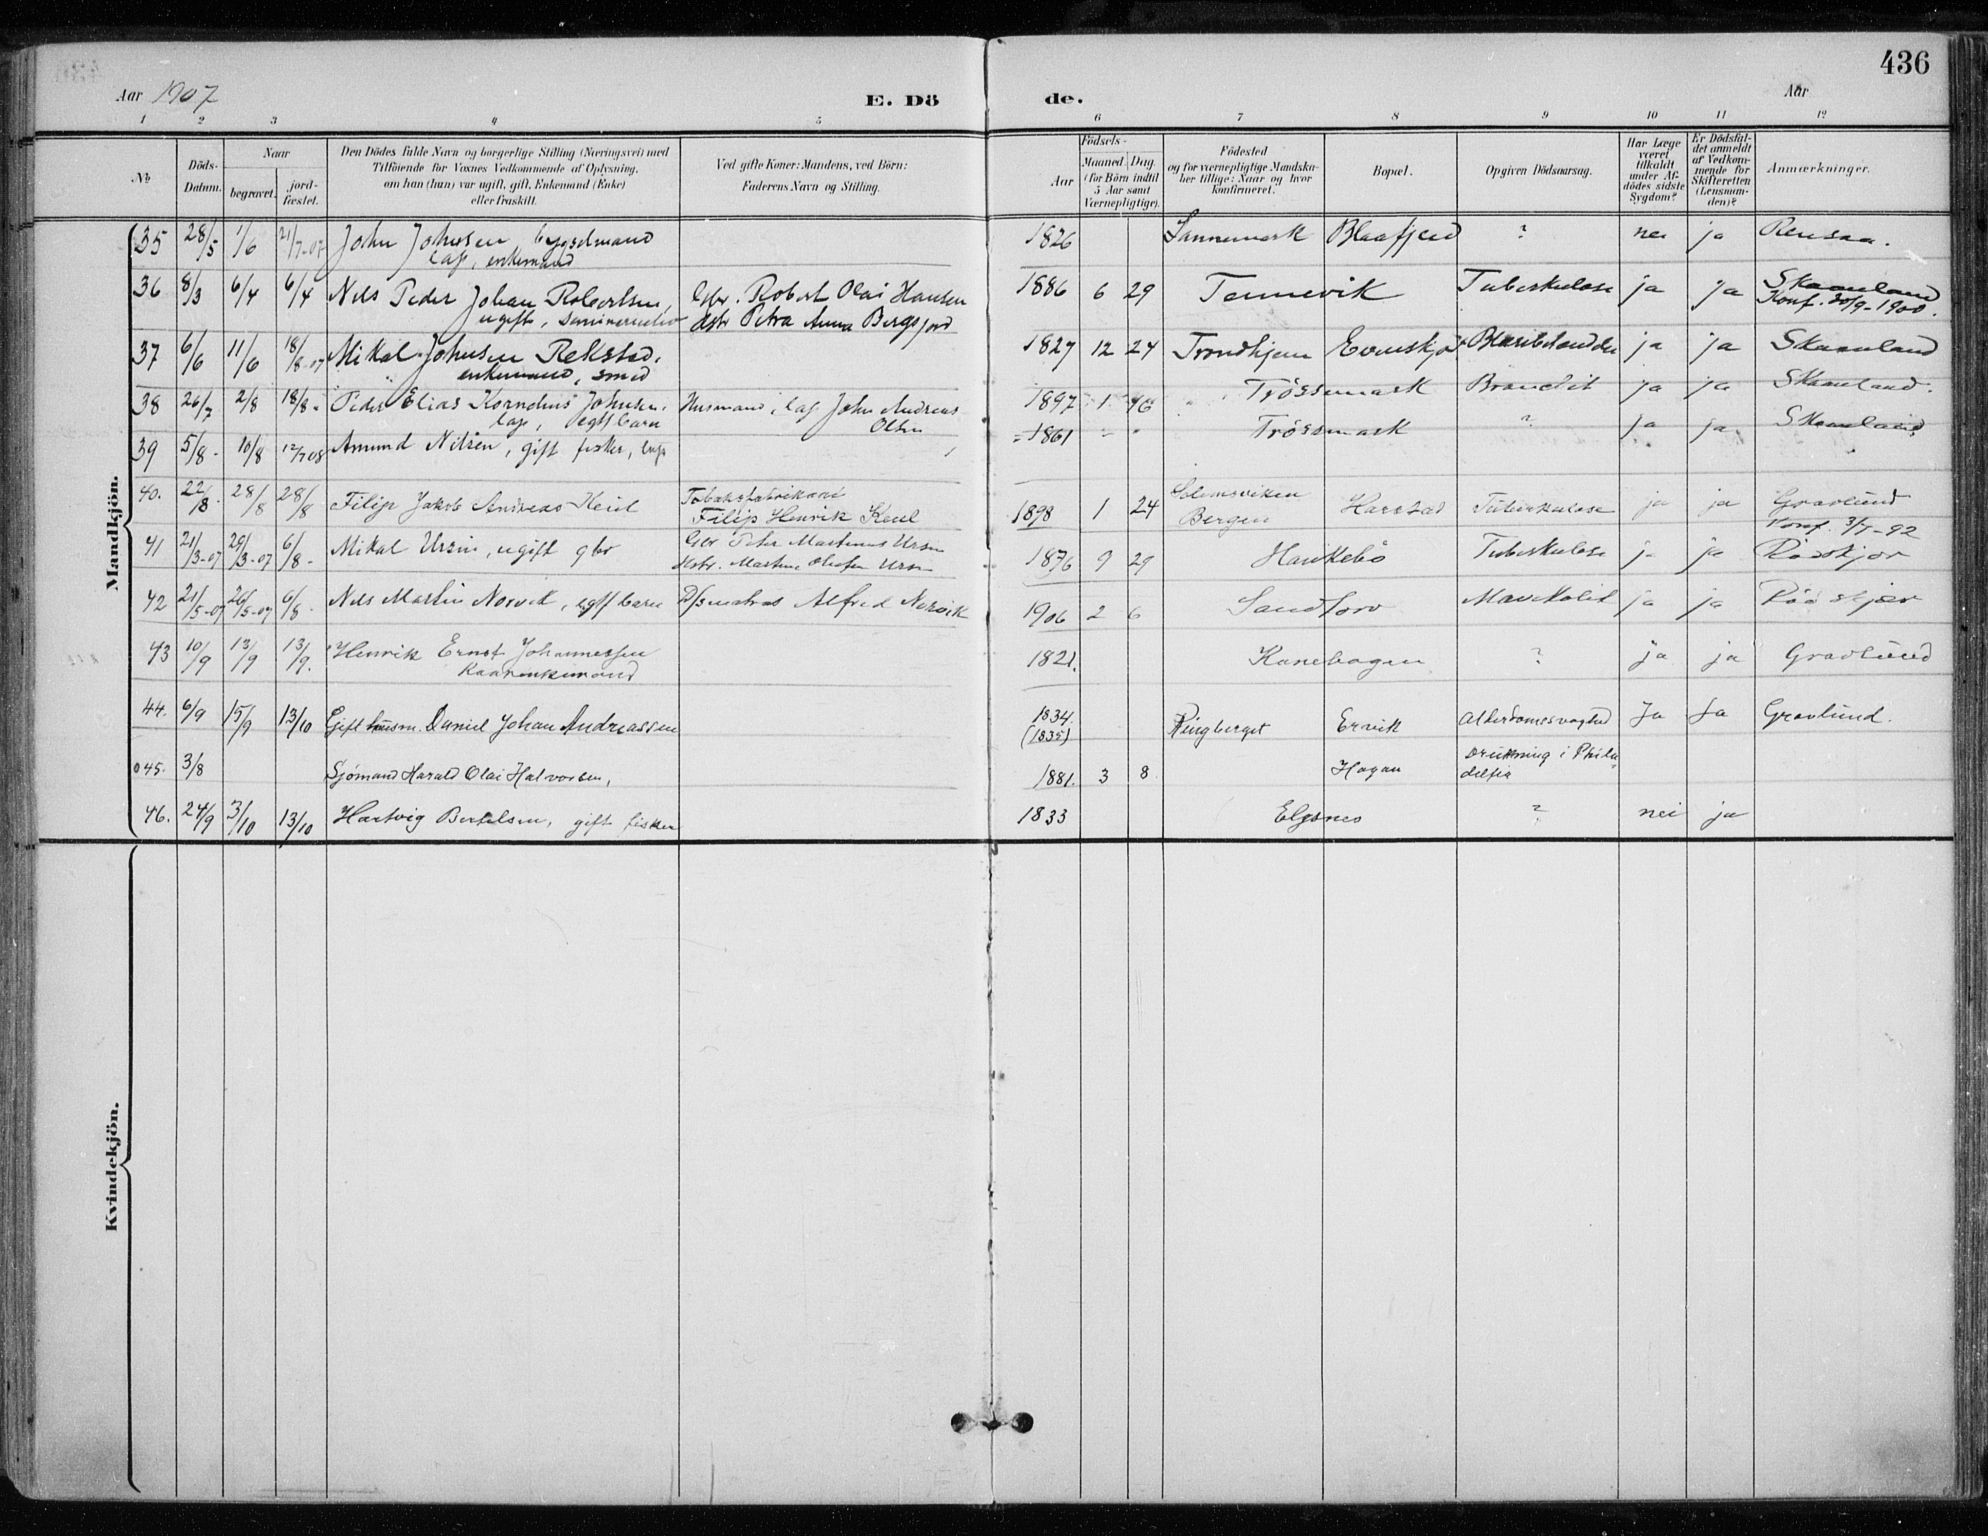 436
Aar 1907
E. Dö
de.
Aar
1 2 3 4 5 6 7 8 9 10 11 12
№
Döds-
Datum.
Naar
begravet.
jord-
fæstet.
Den Dödes fulde Navn og borgerlige Stilling (Næringsvei) med
Tilföiende for Voxnes Vedkommende af Oplysning,
om han (hun) var ugift, gift, Enkemand (Enke)
eller fraskilt.
Ved gifte Koner: Mandens, ved Börn:
Faderens Navn og Stilling.
Födsels-
Aar
Maaned Dag
(for Börn indtil
5 Aar samt
Værnepligtige).
Födested
og for værnepligtige Mandska-
ber tillige: Naar og hvor
konfirmeret.
Bopæl.
Opgiven Dödsaarsag.
Har Læge
været
tilkaldt
under Af-
dödes sidste
Sygdom?
Er Dödsfal-
det anmeldt
af Vedkom-
mende for
Skifteretten
(Lensman-
den)?
Anmærkninger.
Mandkjön.
35 28/5 1/6 21/7-07 John Johnsen, bygselmand 1826 Sannemark Blaafjeld ? nei ja Rensaa.
lap, enkemand
36 8/3 6/4 6/4 Nils Peder Johan Robertsen, Gbr. Robert Olai Hansen 1886 6 29 Tennevik Tuberkulose ja ja Skaanland
ugift, hstr Petra Anna Bergsjord Konf. 30/9-1900.
37 6/6 11/6 18/8-07 Mikal Johnsen Rekstad, 1827 12 24 Trondhjem ja ja Skaanland
enkemand, smed
38 26/7 2/8 18/8- Peder Elias Kornelius Johnsen, Husmand, lap John Andreas 1897 1 16 Trössemark Broncit ja ja Skaanland.
lap, egtf barn Olsen
39 5/8- 10/8 12/7 08 Amund Nilsen, gift fisker, lap 1861 Trössmark ? ja ja Skaanland
40. 22/8. 28/8 28/8 Filip Jakob Andreas Keul Tobaksfabrikant 1898 1 24 Solemsviken Harstad Tuberkulose ja ja Gravlund
Filip Henrik Keul Bergen Konf.
41 21/3-07 29/3-07 6/8- Mikal Ursin, ugift gbr Gbr Peter Martinus Ursin 1876 9 29 Haukebö Tuberkulose ja ja
42 21/5-07 26/5-07 6/8- Nils Martin Norvik, egtf barn Alfred Norvik 1906 2 6 Sandtorv ja ja
43 10/9 13/9 13/9. Henrik Ernst Johannessen 1821. Kanebogen ? ja ja Gravlund
44. 6/9 15/9 13/10 Gift husm. Daniel Johan Andreassen 1834. Ringberget Ervik Alderdomssvaghed Ja Ja Gravlund.
(1835)
45. 3/8 Sjömand Harald Olai Halvorsen, 1881. 3 8 Hagan Drukning i Phila-
delfia
46. 24/9 3/10 13/10 Hartvig Bertelsen, gift fisker 1833 Elgsnes ? nei ja
Kvindekjön.